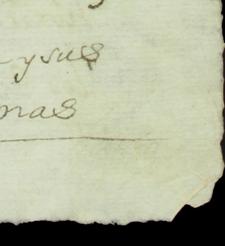 ysus
mas